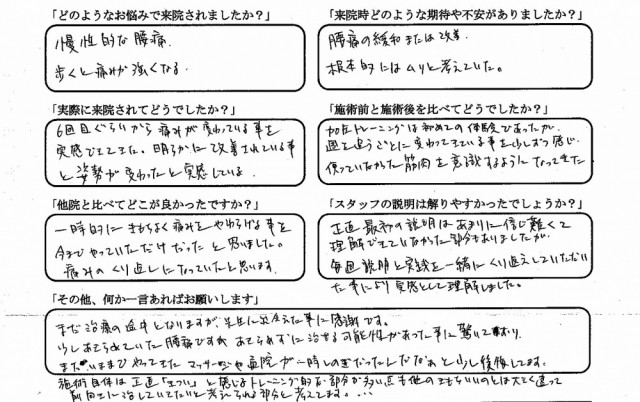 「どのようなお悩みで来院されましたか？」
慢性的な腰痛.
歩くと痛みが強くなる.
「来院時どのような期待や不安がありましたか？」
腰痛の緩和または改善.
根本的にはムリと考えていた。
「実際に来院されてどうでしたか？」
6回目ぐらいから痛みが変わっている事を
実感できてきた。明らかに改善されている事
と姿勢が変わったと実感している.
「施術前と施術後を比べてどうでしたか？」
加圧トレーニングは初めての体験であったが、
週を追うごとに変わってきている事を少しずつ感じ.
使っていなかった筋肉を意識するようになってきた
「他院と比べてどこが良かったですか？」
一時的にきもちよく痛みをやわらげる事を
今までやっていただけだったと思いました。
痛みのくり返しになっていたと思います.
「スタッフの説明は解りやすかったでしょうか？」
正直最初の説明はあまりに信じ難くて
理解できていなかった部分もありましたが、
毎回説明と実践を一緒にくり返えしていただい
た事により実感として理解しました。
「その他、何か一言あればお願いします」
まだ治療の途中となりますが、先生に出会えた事に感謝です。
少しあきらめていた腰痛ですが あきらめずに治せる可能性があった事に驚いており.
また いままでやってきた マッサージや 院が一時しのぎだったんだなあと少し後悔してます.
施術自体は正直「きつい」と感じるトレーニング的な部分が多い 他の きもちいいのとは大きく違って
前向きに治していきたいと考えられる部分と考えてます. ...